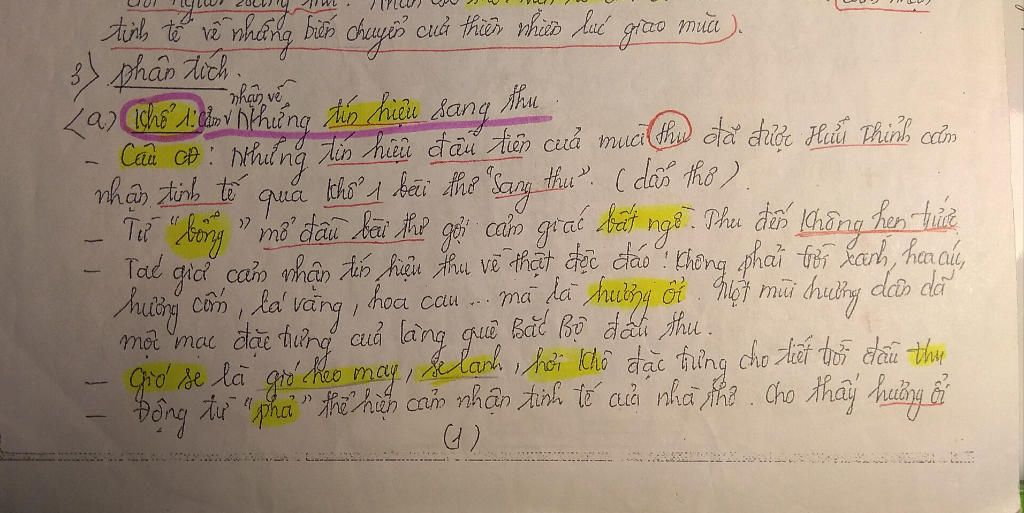 tinh tế về những biến chuyển của thiên nhiên lúc giao mùa).
3) phân tích.
a) Khổ 1: Cảm nhận về Những tín hiệu sang thu
- Câu CĐ: Những tín hiệu đầu tiên của mùa thu đã được Hữu Thỉnh cảm
nhận tinh tế qua khổ 1 bài thơ "Sang thu". (dẫn thơ).
- Từ "bỗng" mở đầu bài thơ gợi cảm giác bất ngờ. Thu đến không hẹn trước
- Tác giả cảm nhận tín hiệu thu về thật độc đáo! Không phải trời xanh, hoa cúc,
hương cốm, lá vàng, hoa cau ... mà là hương ổi. Một mùi hương dân dã
mộc mạc đặc trưng của làng quê Bắc Bộ đầu thu.
- Gió se là gió heo may, se lạnh, hơi khô đặc trưng cho tiết trời đầu thu
- Động từ "phả" thể hiện cảm nhận tinh tế của nhà thơ. Cho thấy hương ổi
(1)